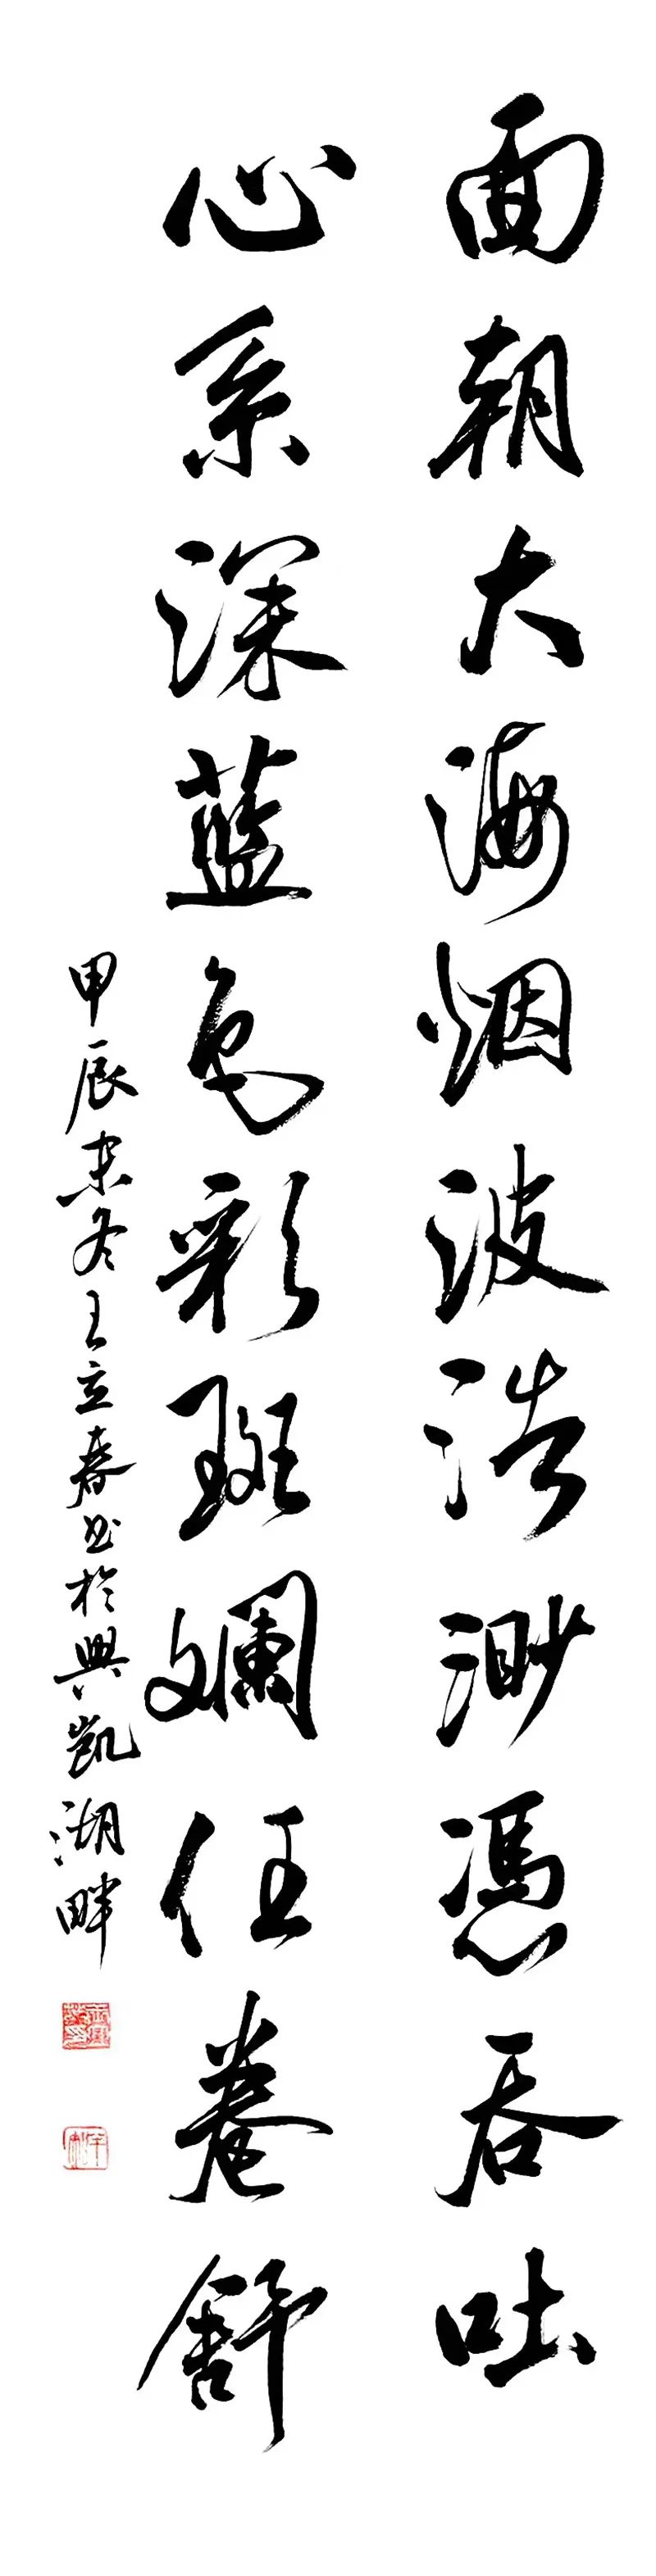 面朝大海烟波浩渺憑吞吐
心系深蓝色彩斑斓任卷舒
甲辰末冬王立春书於興凯湖畔